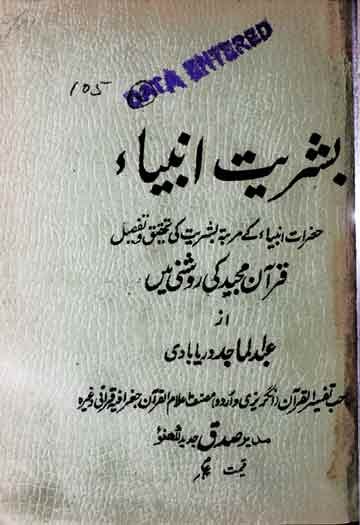 105
DATA ENTERED
بشریت انبیاء
حضرات انبیاء کے مرتبۂ بشریت کی تحقیق و تفصیل
قرآن مجید کی روشنی میں
از
عبدالماجد دریابادی
صاحب تفسیر القرآن (انگریزی و اردو) مصنف اعلام القرآن جغرافیہ قرآنی وغیرہ
مدیر صدق جدید لکھنؤ
قیمت